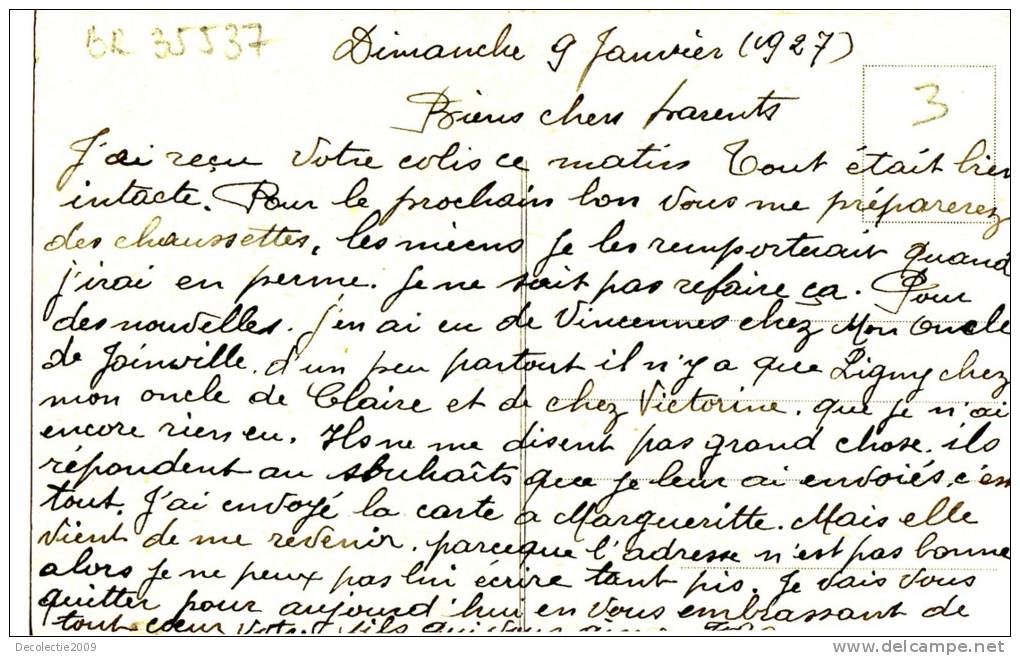 BR 35537
Dimanche 9 Janvier (1927)
3
Biens chers parents
J'ai reçu votre colis ce matin Tout était bien
intacte. Pour le prochain bon vous me préparerez
des chaussettes, les miens je les remporterait quand
j'irai en perme. Je ne sait pas refaire ça. Pour
des nouvelles. j'en ai eu de Vincennes chez Mon Oncle
de Joinville. d'un peu partout il n'y a que Ligny chez
mon oncle de Claire et de chez Victorine. que je n'ai
encore rien eu. Ils ne me disent pas grand chose. ils
répondent au souhaîts que je leur ai envoiés, c'est
tout. J'ai envoyé la carte a Margueritte. Mais elle
vient de me revenir. parceque l'adresse n'est pas bonne
alors je ne peux pas lui écrire tant pis. Je vais vous
quitter pour aujourd'hui en vous embrassant de
tout coeur Votre fils qui vous aime
Decolectie2009
www.delcampe.net